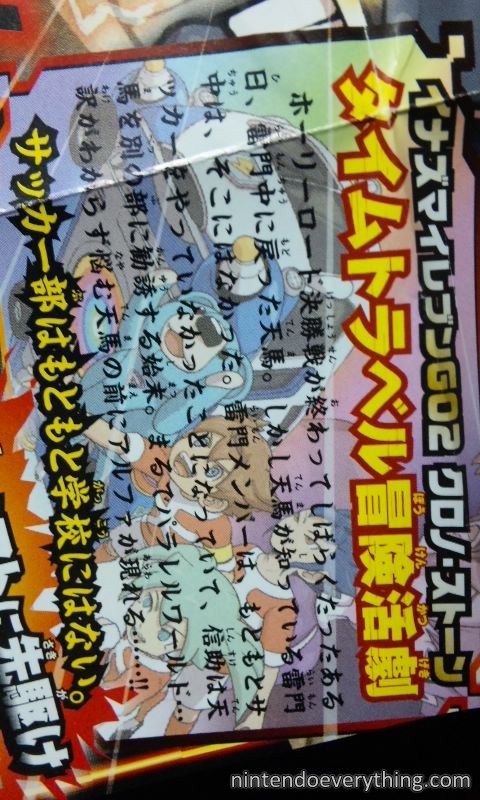 イナズマイレブンGO2 クロノ・ストーン
タイムトラベル冒険活劇
ホーリーロード決勝戦が終わってしばらくたったある
日、雷門中に戻った天馬。しかし天馬が知っている雷門
中は、そこにはなかった。雷門メンバーは、もともとサ
ッカーをやっていなかったことになっていて、信助は天
馬を別の部に勧誘する始末。まるでパラレルワールド…
訳がわからず悩む天馬の前にアルファが現れる……!!
サッカー部はもともと学校にはない。
ストに先駆け
nintendoeverything.com